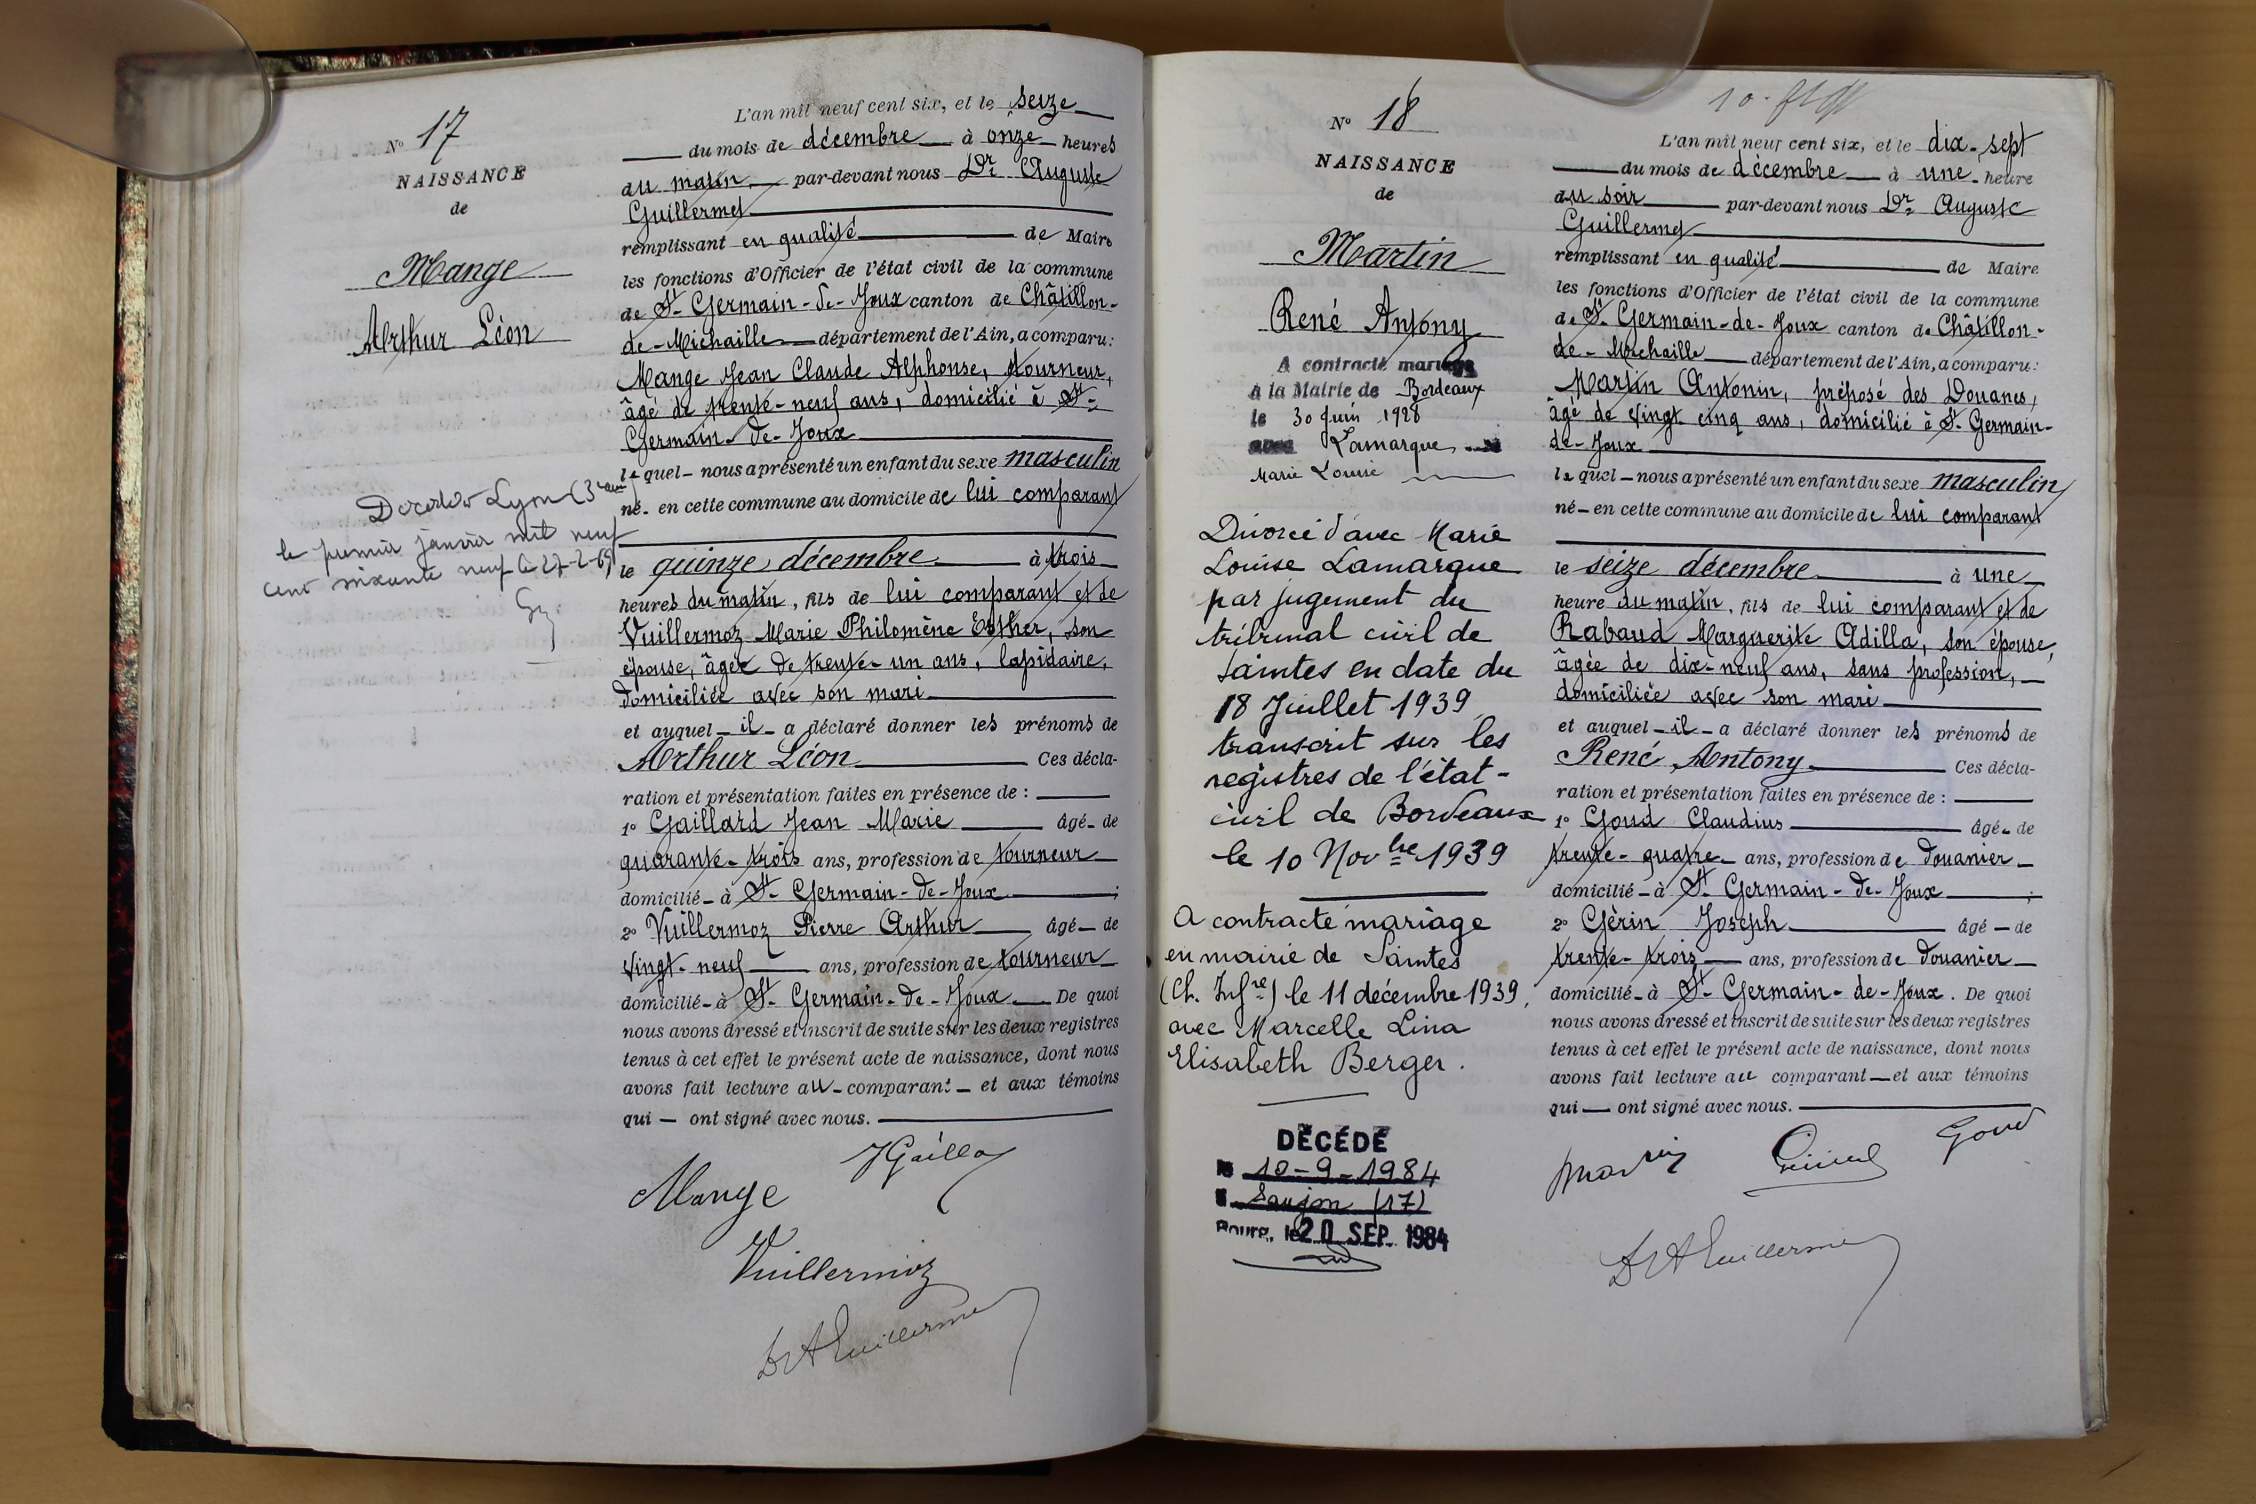 N° 17
NAISSANCE
de
Mange
Arthur Léon
Décédé à Lyon (3e arr)
le premier janvier mil neuf
cent soixante neuf le 27-2-69
L'an mil neuf cent six, et le seize
du mois de décembre à onze heures
du matin par-devant nous Dr Auguste
Guillermet
remplissant en qualité de Maire
les fonctions d'Officier de l'état civil de la commune
de St Germain-de-Joux canton de Châtillon-
de-Michaille département de l'Ain, a comparu:
Mange Jean Claude Alphonse, tourneur,
âgé de trente-neuf ans, domicilié à St-
Germain-de-Joux
lequel nous a présenté un enfant du sexe masculin
né en cette commune au domicile de lui comparant
le quinze décembre à trois
heures du matin, fils de lui comparant et de
Vuillermoz Marie Philomène Esther, son
épouse, âgée de trente-un ans, lapidaire,
domiciliée avec son mari
et auquel il a déclaré donner les prénoms de
Arthur Léon Ces décla-
ration et présentation faites en présence de :
1° Gaillard Jean Marie âgé de
quarante-trois ans, profession de tourneur
domicilié à St Germain-de-Joux ;
2° Vuillermoz Pierre Arthur âgé de
vingt-neuf ans, profession de tourneur
domicilié à St Germain-de-Joux De quoi
nous avons dressé et inscrit de suite sur les deux registres
tenus à cet effet le présent acte de naissance, dont nous
avons fait lecture au comparant et aux témoins
qui ont signé avec nous.
JGailla
Mange
Vuillermoz
Dr A Guillermet
N° 18
NAISSANCE
de
Martin
René Antony
A contracté mariage
à la Mairie de Bordeaux
le 30 Juin 1928
avec Lamarque
Marie Louise
Divorcé d'avec Marie
Louise Lamarque
par jugement du
tribunal civil de
Saintes en date du
18 Juillet 1939
transcrit sur les
registres de l'état-
civil de Bordeaux
le 10 Novbre 1939
A contracté mariage
en mairie de Saintes
(Ch. Infre) le 11 décembre 1939,
avec Marcelle Lina
Elisabeth Berger.
DÉCÉDÉ
le 10-9-1984
à Saujon (17)
Bourg, le 20 SEP. 1984
L'an mil neuf cent six, et le dix-sept
du mois de décembre à une heure
du soir par-devant nous Dr Auguste
Guillermet
remplissant en qualité de Maire
les fonctions d'Officier de l'état civil de la commune
de St Germain-de-Joux canton de Châtillon-
de-Michaille département de l'Ain, a comparu:
Martin Antonin, préposé des Douanes,
âgé de vingt cinq ans, domicilié à St-Germain-
de-Joux
lequel nous a présenté un enfant du sexe masculin
né en cette commune au domicile de lui comparant
le seize décembre à une
heure du matin, fils de lui comparant et de
Rabaud Marguerite Adilla, son épouse,
âgée de dix-neuf ans, sans profession,
domiciliée avec son mari
et auquel il a déclaré donner les prénoms de
René Antony Ces décla-
ration et présentation faites en présence de :
1° Goud Claudius âgé de
trente-quatre ans, profession de douanier
domicilié à St Germain-de-Joux ;
2° Gérin Joseph âgé de
trente-trois ans, profession de douanier
domicilié à St Germain-de-Joux. De quoi
nous avons dressé et inscrit de suite sur les deux registres
tenus à cet effet le présent acte de naissance, dont nous
avons fait lecture au comparant et aux témoins
qui ont signé avec nous.
Martin Goud
Dr A Guillermet